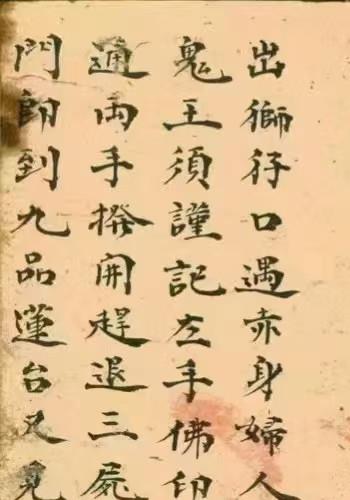 出獅行口遇赤身婦人
鬼王須謹記左手佛印
通両手撥開趕退三屍
門即到九品蓮台又見